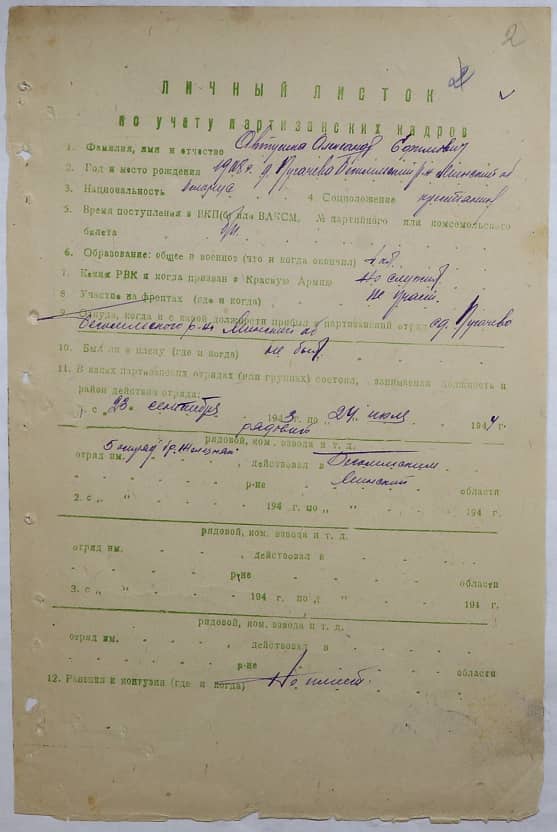 2
ЛИЧНЫЙ ЛИСТОК
по учету партизанских кадров
1. Фамилия, имя и отчество Автушка Александр Ефимович
2. Год и место рождения 1908 г. д. Пугачево Бегомльский р-н Минской об
3. Национальность белорус 4. Соцположение крестьянин
5. Время поступления в ВКП(б) или ВЛКСМ, № партийного или комсомольского
билета б/п
6. Образование: общее и военное (что и когда окончил) 4 кл.
7. Каким РВК и когда призван в Красную Армию Не служил
8. Участие на фронтах (где и когда) не участ.
9. Откуда, когда и с какой должности прибыл в партизанский отряд с д. Пугачево
Бегомльского р-на Минской об
10. Был ли в плену (где и когда) не был
11. В каких партизанских отрядах (или группах) состоял, занимаемая должность и
район действия отряда:
1. с „23 сентября 1943 г. по „ 24 июля 1944 г.
рядовой
рядовой, ком. взвода и т. д.
отряд им. 5 отряд бр. Железняк , действовал в Бегомльским
р-не Минский области
2. с „ “ 194 г. по „ “ 194 г.
рядовой, ком. взвода и т. д.
отряд им. , действовал в
р-не области
3. с „ “ 194 г. по „ “ 194 г.
рядовой, ком. взвода и т. д.
отряд им. , действовал в
р-не области
12. Ранения и контузия (где и когда) Не имеет.